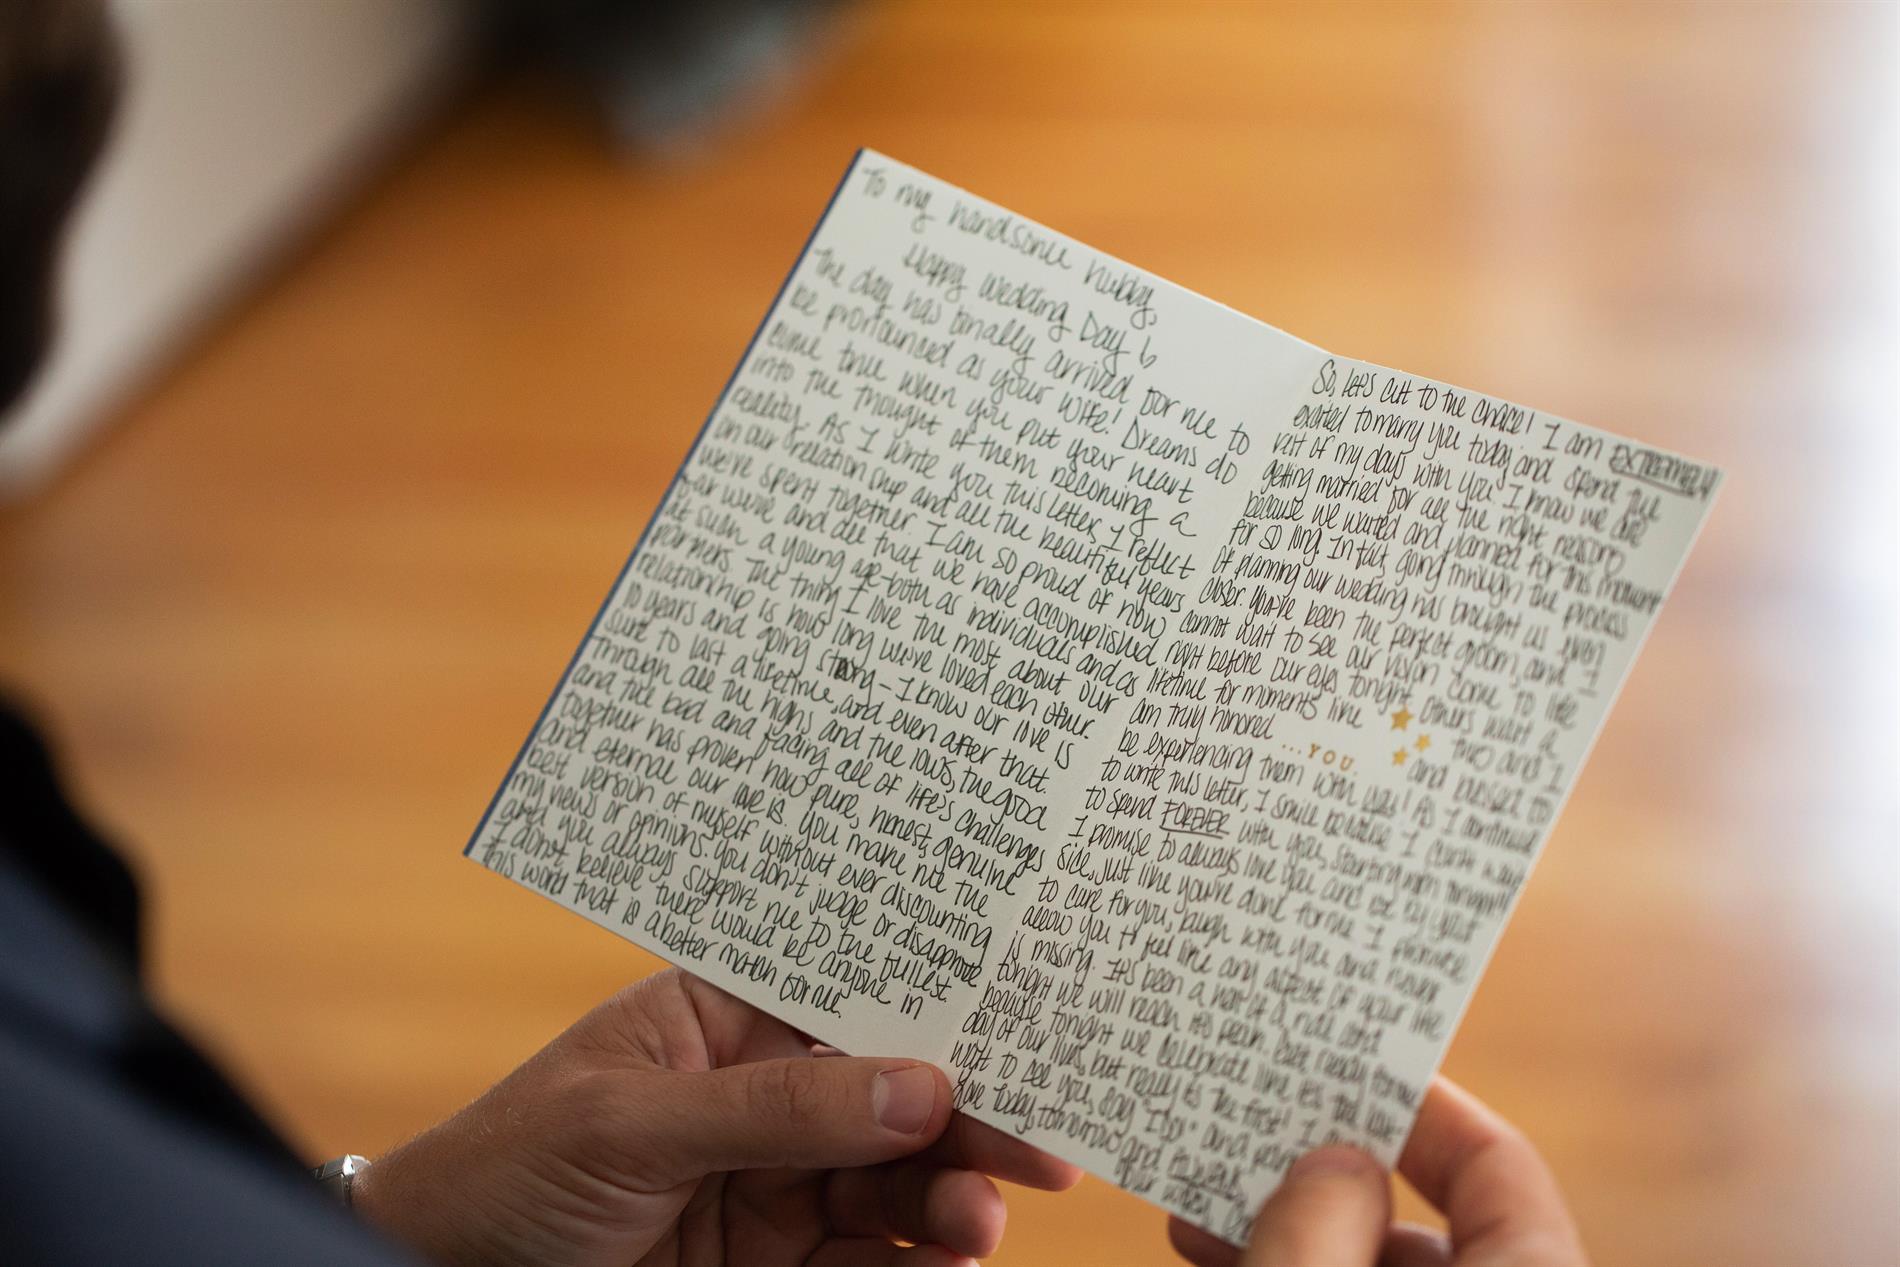 To my handsome hubby,
Happy Wedding Day!
The day has finally arrived for me to
be pronounced as your wife! Dreams do
come true when you put your heart
into the thought of them becoming a
reality. As I write you this letter, I reflect
on our relationship and all the beautiful years
we've spent together. I am so proud of how
far we've and all that we have accomplished
at such a young age-both as individuals and as
partners. The thing I love the most about our
relationship is how long we've loved each other.
10 years and going strong - I know our love is
sure to last a lifetime, and even after that.
Through all the highs and the lows, the good
and the bad and facing all of life's challenges
together has proven how pure, honest, genuine
and eternal our love is. You make me the
best version of myself without ever discounting
my views or opinions. You don't judge or disapprove
and you always support me to the fullest.
I don't believe there would be anyone in
this world that is a better match for me.
So, let's cut to the chase! I am EXTREMELY
excited to marry you today and spend the
rest of my days with you. I know we are
getting married for all the right reasons
because we waited and planned for this moment
for so long. In fact, going through the process
of planning our wedding has brought us even
closer. You've been the perfect groom, and I
cannot wait to see our vision come to life
right before our eyes tonight. Others wait a
lifetime for moments like two and I
am truly honored and blessed to
...YOU.
be experiencing them with you! As I continue
to write this letter, I smile because I can't wait
to spend FOREVER with you, starting from tonight!
I promise to always love you and be by your
side, just like you've done for me. I promise
to care for you, laugh with you and never
allow you to feel like any aspect of your life
is missing. It's been a hell of a ride and
tonight we will reach its peak. Get ready for me
because tonight we celebrate like it's the last
day of our lives, but really it's the first! I can't
wait to see you, say "I do" and
love today, tomorrow and FOREVER.
Your wifey,